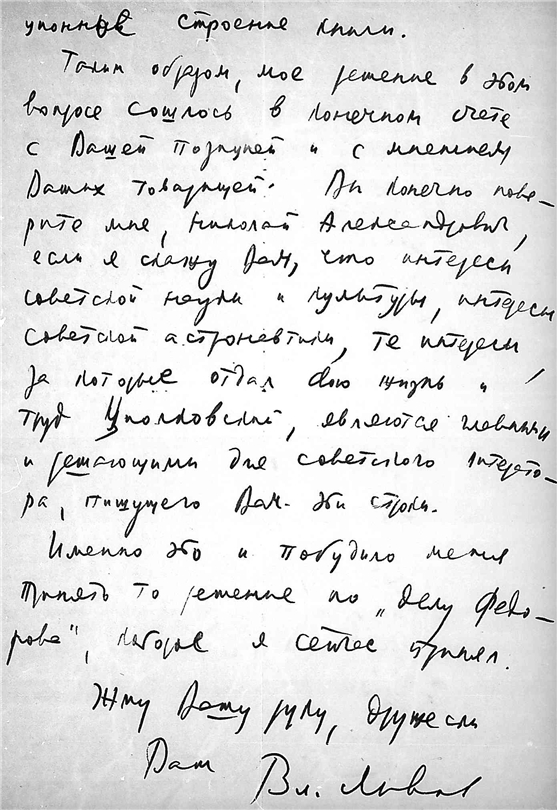 строение книги.
Таким образом, мое решение в этом
вопросе сошлось в конечном счете
с Вашей позицией и с мнением
Ваших товарищей. Вы конечно пове-
рите мне, Николай Александрович,
если я скажу Вам, что интересы
советской науки и культуры, интересы
советской астронавтики, те интересы
за которые отдал свою жизнь и
труд Циолковский, являются главными
и решающими для советского литерато-
ра, пишущего Вам эти строки.
Именно это и побудило меня
принять то решение по „делу Федо-
рова", которое я сейчас принял.
Жму Вашу руку, дружески
Ваш
Вл. Львов